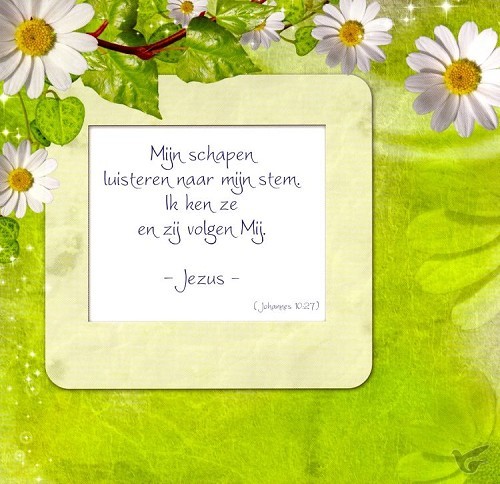 Mijn schapen
luisteren naar mijn stem.
Ik ken ze
en zij volgen Mij.
- Jezus -
(Johannes 10:27)